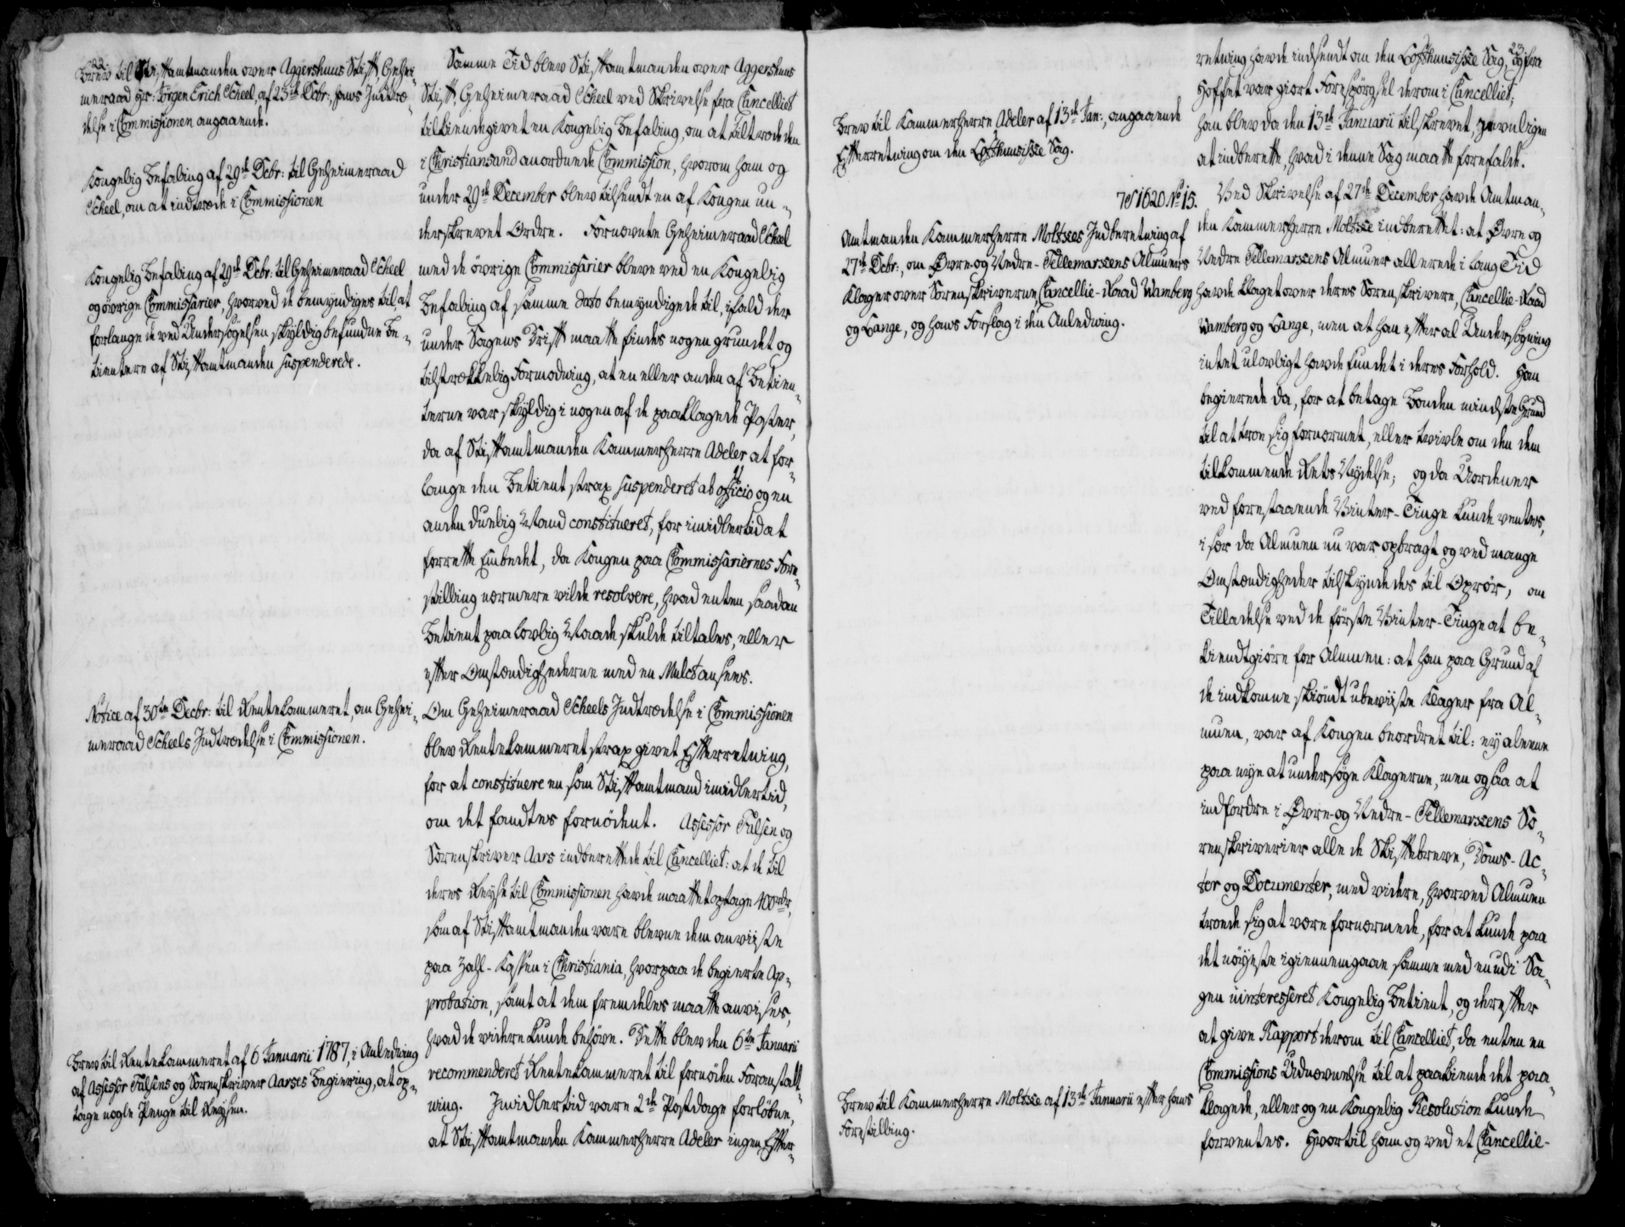 Brev til Stiftamtmanden over Aggershuus Stift, Gehei-
meraad Hr: Jørgen Erich Scheel, af 23de Decbr:, hans Indtræ-
delse i Commissionen angaaende.
Kongelig Befaling af 29de Decbr: til Geheimeraad
Scheel, om at indtræde i Commissionen
Kongelig Befaling af 29de Decbr: til Geheimeraad Scheel
og øvrige Commissarier, hvorved de bemyndiges til, at
forlange de ved Undersøgelsen skyldig befundne Be-
tientere af Stiftamtmanden suspenderede.
Notice af 30te Decbr: til Rentekammeret, om Gehei-
meraad Scheels Indtrædelse i Commissionen.
Brev til Rentekammeret af 6 Januarii 1787, i Anledning
af Assessor Fulsens og Sorenskriver Aarses Begiering, at op-
tage nogle Penge til Reysen.
Samme Tid blev Stiftamtmanden over Aggershuus
Stift, Geheimeraad Scheel ved Skrivelse fra Cancelliet
tilkiendegivet en Kongelig Befaling, om at tiltræde den
i Christiansand anordnede Commission, hvorom ham og
under 29de December blev tilsendt en af Kongen un-
derskrevet Ordre. Fornævnte Geheimeraad Scheel
med de øvrige Commissarier bleve ved en Kongelig
Befaling af samme dato bemyndigede til, ifald der
under Sagens Drift maatte findes nogen grundet og
tilstrækkelig Formodning, at en eller anden af Betien-
terne var skyldig i nogen af de paaklagede Poster,
da af Stiftamtmanden Kammerherre Adeler at for-
lange den Betient strax suspenderet ab officio og en
anden duelig Mand constitueret, for imidlertid at
forrette Embedet, da Kongen paa Commissariernes Fore-
stilling nærmere vilde resolvere, hvad enten saadan
Betient paa lovlig Maade skulde tiltales, eller
efter Omstændighederne med en Mulct ansees.
Om Geheimeraad Scheels Indtrædelse i Commissionen
blev Rentekammeret strax givet Efterretning,
for at constituere en som Stiftamtmand imidlertid,
om det fandtes fornødent. Assessor Fulsen og
Sorenskriver Aars indberettede til Cancelliet: at de til
deres Reyse til Commissionen havde maattet optage 400 rdr,
som af Stiftamtmanden vare blevne dem anviiste
paa Zahl-Kassen i Christiania, hvorpaa de begierte Ap-
probation, samt at dem fremdeles maatte anvises,
hvad de videre kunde behøve. Dette blev den 6te Januarii
recommenderet Rentekammeret til fornøden Foranstalt-
ning. Imidlertid vare 2de Postdage forløbne,
at Stiftamtmanden Kammerherre Adeler ingen Efter-
Brev til Kammerherre Adeler af 13de Jan:, angaaende
Efterretning om den Lofthuusiske Sag.
No 15.
Amtmanden Kammerherre Moltkes Indberetning af
27de Decbr:, om Øvre- og Nedre-Tellemarkens Almues
Klager over Sorenskriverne, Cancellie-Raad Wamberg
og Lange, og hans Forslag i den Anledning.
Brev til Kammerherre Moltke af 13de Januarii efter hans
Forestilling.
23.
retning havde indsendt om den Lofthuusiske Sag, og fra
Hoffet var giort Forespørgsel derom i Cancelliet;
han blev da den 13de Januarii tilskrevet,
at indberette, hvad i denne Sag maatte forefalde.
Ved Skrivelse af 27de December havde Amtman-
den Kammerherre Moltke indberettet: at Øvre og
Nedre Tellemarkens Almuer allerede i lang Tid
havde klaget over deres Sorenskrivere, Cancellie-Raad
Wamberg og Lange, men at han efter al Undersøgning
intet ulovligt havde fundet i deres Forhold. Han
begierede da, for at betage Bonden mindste Grund
til at troe sig fornærmet, eller tvivle om den dem
tilkommende Rets Nydelse; og da Uordener
ved forestaaende Vinter-Tinge kunde ventes,
i sær da Almuen nu var opbragt og ved mange
Omstændigheder tilskyndedes til Oprør, om
Tilladelse ved de første Vinter-Tinge at be-
kiendtgiøre for Almuen: at han paa Grund af
de indkomne skiøndt ubeviiste Klager fra Al-
muen, var af Kongen beordret til: ey aleene
paa nye at undersøge Klagerne, men og saa at
indfordre i Øvre- og Nedre-Tellemarkens So-
renskriverier alle de Skiftebreve, Doms-Ac-
ter og Documenter, med videre, hvorved Almuen
troede sig at være fornærmede, for at kunde paa
det nøyeste igiennemgaae samme med en udi Sa-
gen uinteresseret Kongelig Betient, og derefter
at give Rapport derom til Cancelliet, da enten en
Commissions Udnævnelse til at paakiende det paa-
klagede, eller og en Kongelig Resolution kunde
forventes. Hvortil han og ved et Cancellie-